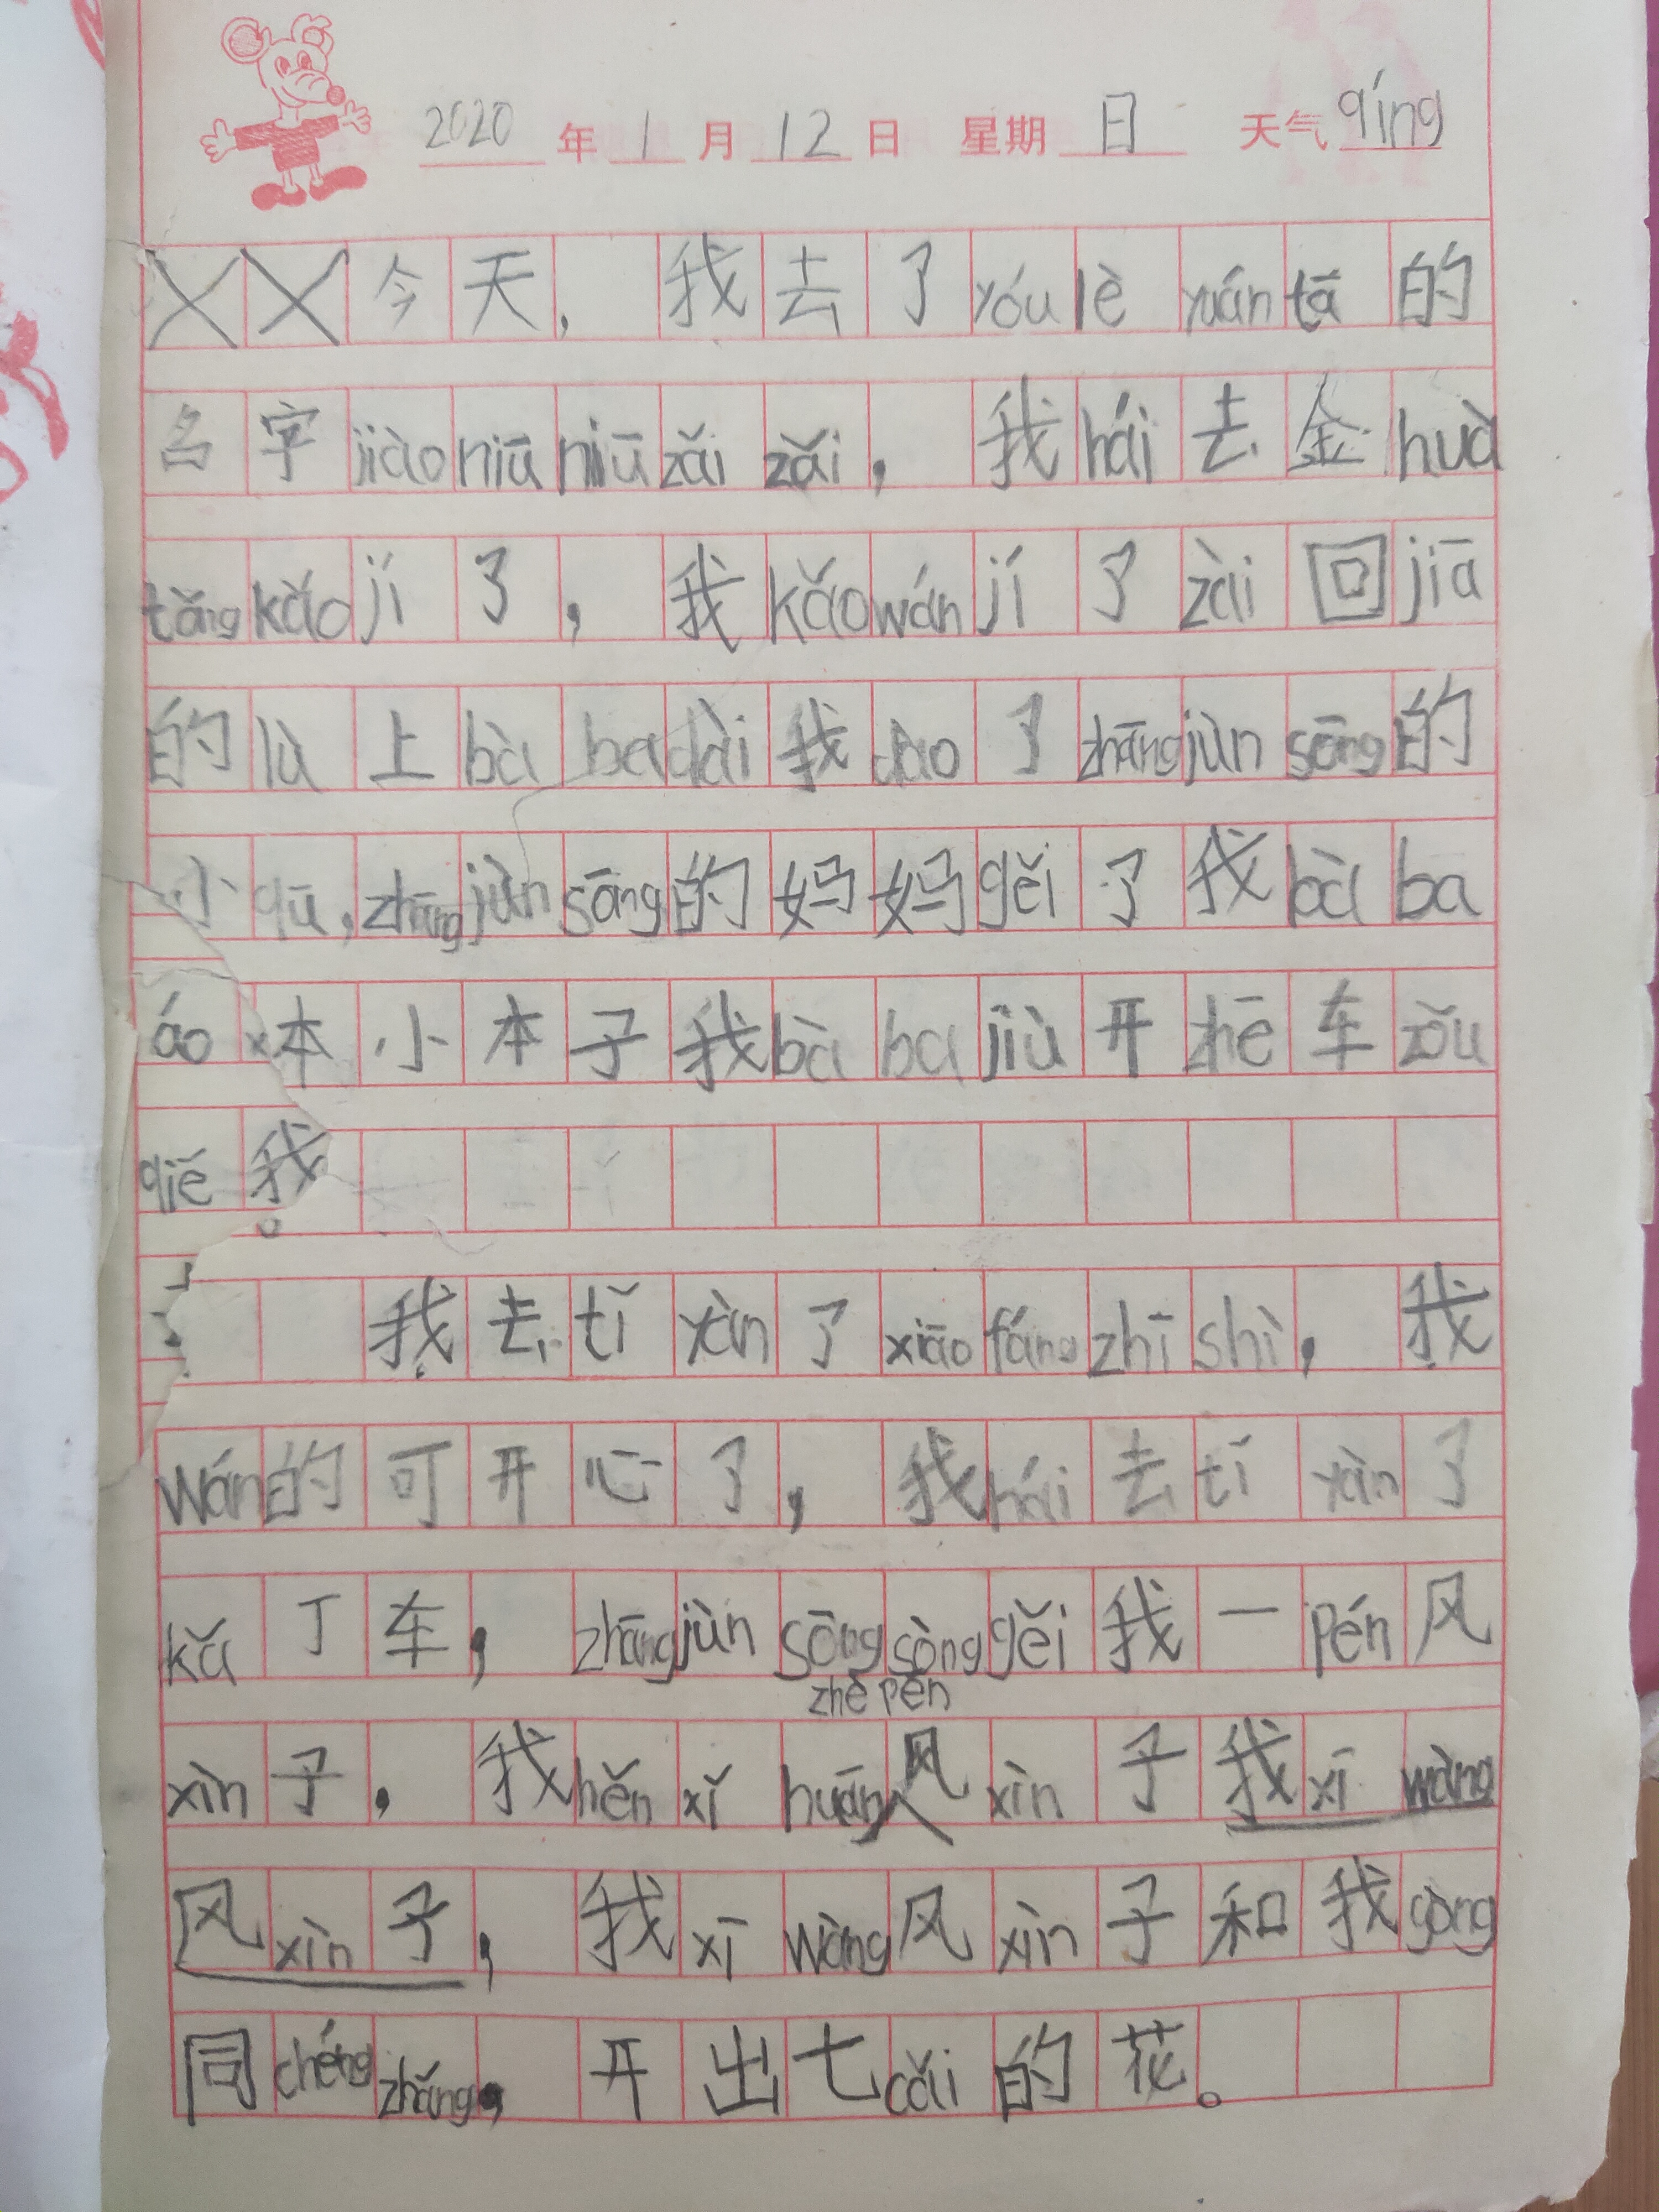 2020年1月12日 星期日 天气qíng
今天，我去了yóu lè yuán tā的
名字jiào niū niū zǎi zǎi，我hái去金huà
tǎng kǎo jí了，我kǎo wán jí了zài回jiā
的lù上bà ba dài我dào了zhāng jùn sōng的
小qū，zhāng jùn sōng的妈妈gěi了我bà ba
本小本子我bà ba jiù开zhē车zǒu
我去tǐ yàn了xiāo fáng zhī shì，我
wán的可开心了，我hái去tǐ yàn了
kǎ丁车，zhāng jùn sōng sòng gěi我一pén风
zhè pén
xìn子，我hěn xǐ huān风xìn子我xī wàng
风xìn子，我xī wàng风xìn子和我gòng
同chéng zhǎng，开出七cǎi的花。